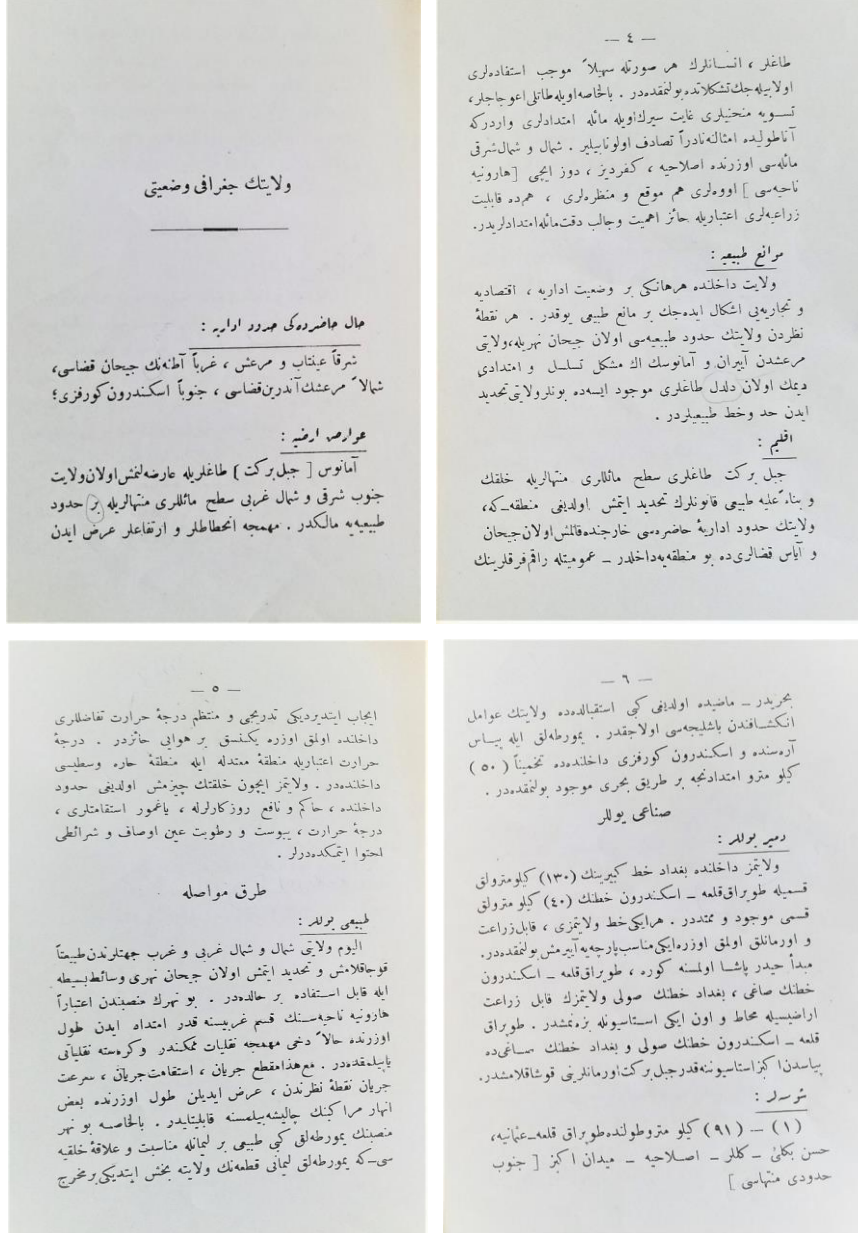 ولايتك جغرافى وضعيتى
حال حاضرده‌كى حدود اداريه :
شرقاً عينتاب و مرعش ، غرباً آطنه‌نك جيحان قضاسى،
شمالاً مرعشك آندرين قضاسى ، جنوباً اسكندرون كورفزى؛
عوارض ارضيه :
آمانوس [ جبل بركت ] طاغلريله عارضه‌لنمش اولان ولايت
جنوب شرقى و شمال غربى سطح مائللرى منتهالريله بر حدود
طبيعيه‌يه مالكدر . مهمجه انحطاطلر و ارتفاعلر عرض ايدن
— ٤ —
طاغلر ، انسانلرك هر صورتله سهلاً موجب استفاده‌لرى
اولابيله‌جك تشكلاتده بولنمقده‌در . بالخاصه اويله طاتلى اعوجاجلر،
تسويه منحنيلرى غايت سيرك اويله مائله امتدادلرى واردركه
آناطوليده امثالنه نادراً تصادف اولونابيلير . شمال و شمال شرقى
مائله‌سى اوزرنده اصلاحيه ، كفرديز ، دوز ايچى [ هارونيه
ناحيه‌سى ] اووه‌لرى هم موقع و منظره‌لرى ، هم‌ده قابليت
زراعيه‌لرى اعتباريله حائز اهميت وجالب دقت مائله امتدادلريدر.
موانع طبيعيه :
ولايت داخلنده هرهانكى بر وضعيت اداريه ، اقتصاديه
و تجاريه‌يى اشكال ايده‌جك بر مانع طبيعى يوقدر . هر نقطۀ
نظردن ولايتك حدود طبيعيه‌سى اولان جيحان نهريله، ولايتى
مرعشدن آييران و آمانوسك اك مشكل تسلسل و امتدادى
ديمك اولان دلدل طاغلرى موجود ايسه‌ده بونلر ولايتى تحديد
ايدن حد وخط طبيعيلردر .
اقليم :
جبل بركت طاغلرى سطح مائللرى منتهالريله خلقك
و بناءً عليه طبيعى قانونلرك تحديد ايتمش اولديغى منطقه‌ـكه،
ولايتك حدود اداريۀ حاضره‌سى خارجنده قالمش اولان جيحان
و آياس قضالرى‌ده بو منطقه‌يه داخلدر ـ عموميتله راقم فرقلرينك
— ٥ —
ايجاب ايتديرديكى تدريجى و منتظم درجۀ حرارت تفاضللرى
داخلنده اولمق اوزره يكنسق بر هوايى حائزدر . درجۀ
حرارت اعتباريله منطقۀ معتدله ايله منطقۀ حاره وسطيسى
داخلنده‌در . ولايتمز ايچون خلقتك چيزمش اولديغى حدود
داخلنده ، حاكم و نافع روزكارلرله ، ياغمور استقامتلرى ،
درجۀ حرارت ، يبوست و رطوبت عين اوصاف و شرائطى
احتوا ايتمكده‌درلر .
طرق مواصله
طبيعى يوللر :
اليوم ولايتى شمال و شمال غربى و غرب جهتلرندن طبيعتاً
قوجاقلامش و تحديد ايتمش اولان جيحان نهرى وسائط بسيطه
ايله قابل استفاده بر حالده‌در . بو نهرك منصبندن اعتباراً
هارونيه ناحيه‌سنك قسم غربيسنه قدر امتداد ايدن طول
اوزرنده حالاً دخى مهمجه نقليات ممكندر وكرسته نقلياتى
ياپيلمقده‌در . مع‌هذا مقطع جريان ، استقامت جريان ، سرعت
جريان نقطۀ نظرندن ، عرض ايديلن طول اوزرنده بعض
انهار مراكبنك چاليشه‌بيلمسنه قابليتليدر . بالخاصه بو نهر
منصبنك يمورطه‌لق كبى طبيعى بر ليمانله مناسبت و علاقۀ خلقيه
سى‌ـ كه يمورطه‌لق ليمانى قطعه‌نك ولايته بخش ايتديكى بر مخرج
— ٦ —
بحريدر ـ ماضيده اولديغى كبى استقبالده‌ده ولايتك عوامل
انكشافندن باشليجه‌سى اولاجقدر . يمورطه‌لق ايله پياس
آره‌سنده و اسكندرون كورفزى داخلنده‌ده تخميناً ( ٥٠ )
كيلو مترو امتدادنجه بر طريق بحرى موجود بولنمقده‌در .
صناعى يوللر
دمير يوللر :
ولايتمز داخلنده بغداد خط كبيرينك (١٣٠) كيلومترولق
قسميله طوپراق قلعه ـ اسكندرون خطنك (٤٠) كيلو مترولق
قسمى موجود و ممتددر . هر ايكى خط ولايتمزى ، قابل زراعت
و اورمانلق اولمق اوزره ايكى مناسب پارچه‌يه آييرمش بولنمقده‌در.
مبدأ حيدر پاشا اولمسنه كوره ، طوپراق قلعه ـ اسكندرون
خطنك صاغى ، بغداد خطنك صولى ولايتمزك قابل زراعت
اراضيسيله محاط و اون ايكى استاسيونله بزه‌نمشدر . طوپراق
قلعه ـ اسكندرون خطنك صولى و بغداد خطنك صاغى‌ده
پياسدن اكبز استاسيوننه قدر جبل بركت اورمانلرينى قوشاقلامشدر.
شوسه‌لر :
( ١ ) — ( ٩١ ) كيلو مترو طولنده طوپراق قلعه‌ـ عثمانيه،
حسن بكلى ـ كللر ـ اصلاحيه ـ ميدان اكبز [ جنوب
حدودى منتهاسى ]